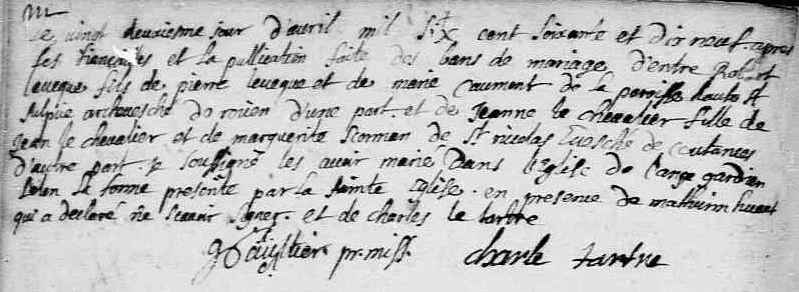 m
Le vingt deuxiesme jour d'avril mil six cent soixante et dix neuf. apres
les fiançailles et la publication faite des bans de mariage d'entre Robert
leveque fils de pierre leveque et de marie caumont de la paroisse haute St
sulpice archevesché de rouen d'une part. et de Jeanne le chevalier fille de
Jean le chevalier et de marguerite Norman de St nicolas Evesché de coutances
d'autre part. je soussigné les avoir marié dans l'Eglise de l'ange gardien
selon la forme prescrite par la sainte Eglise. en presence de mathurin huart
qui a declaré ne scavoir signer. et de charles le tartre
Gaultier pr. miss. charle tartre